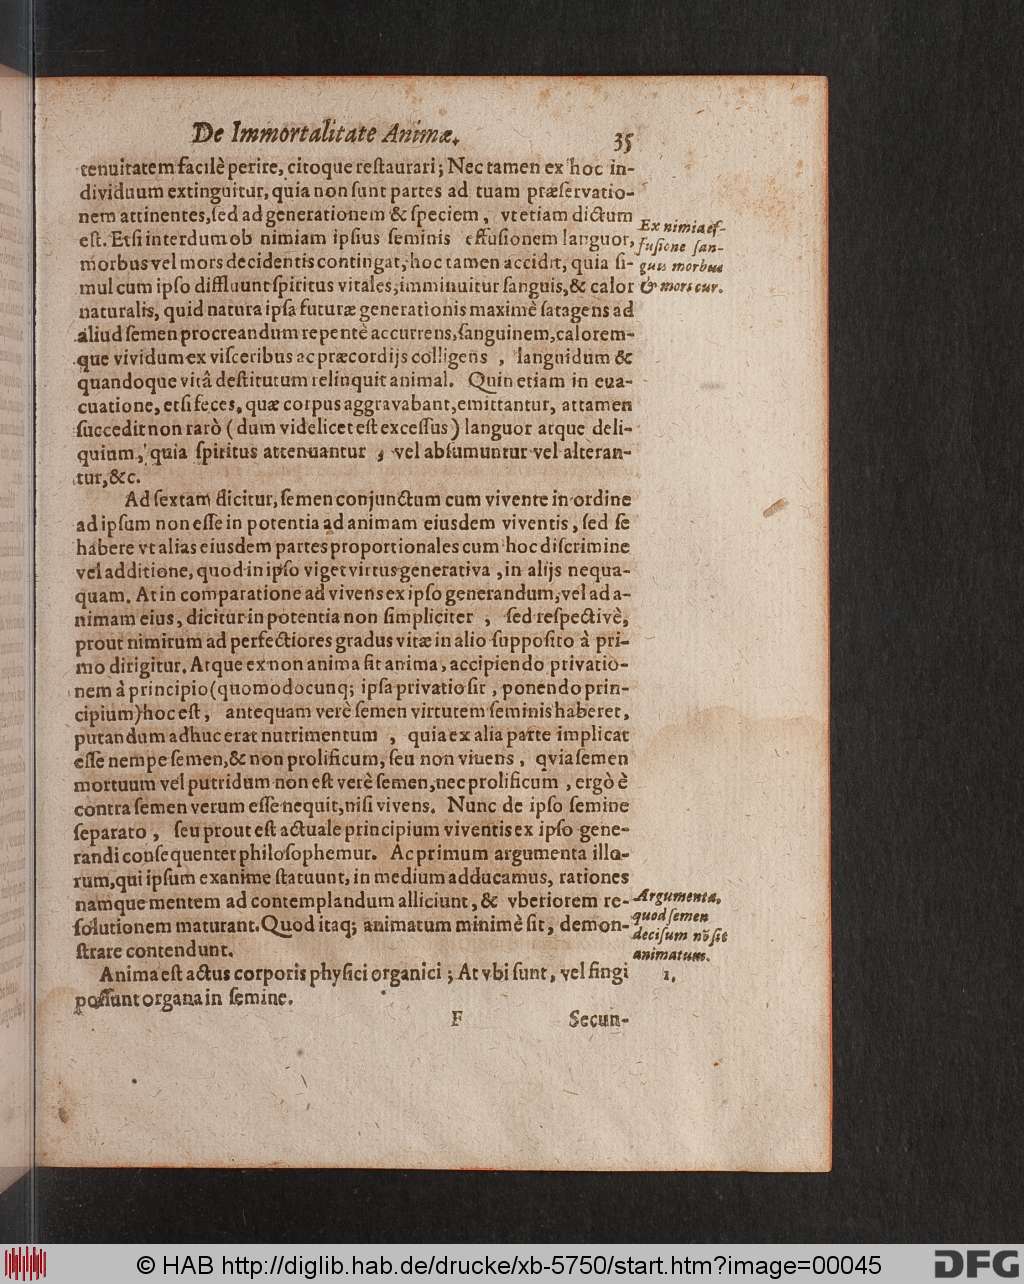 De Immortalitate Animæ. 35
tenuitatem facilè perire, citoque reſtaurari; Nec tamen ex hoc in-
dividuum extinguitur, quia non ſunt partes ad tuam præſervatio-
nem attinentes, ſed ad generationem & ſpeciem, vt etiam dictum
eſt. Etſi interdum ob nimiam ipſius ſeminis effuſionem languor,
morbus vel mors decidentis contingat, hoc tamen accidit, quia ſi-
mul cum ipſo diffluunt ſpiritus vitales, imminuitur ſanguis, & calor
naturalis, quid natura ipſa futuræ generationis maximè ſatagens ad
aliud ſemen procreandum repentè accurrens, ſanguinem, calorem-
que vividum ex viſceribus ac præcordijs colligens, languidum &
quandoque vitâ deſtitutum relinquit animal. Quin etiam in eua-
cuatione, etſi feces, quæ corpus aggravabant, emittantur, attamen
ſuccedit non rarò (dum videlicet eſt exceſſus) languor atque deli-
quium, quia ſpiritus attenuantur, vel abſumuntur vel alteran-
tur, &c.
Ex nimia ef-
fuſione ſan-
guis morbus
& mors cur.
Ad ſextam dicitur, ſemen conjunctum cum vivente in ordine
ad ipſum non eſſe in potentia ad animam eiusdem viventis, ſed ſe
habere vt alias eiusdem partes proportionales cum hoc diſcrimine
vel additione, quod in ipſo viget virtus generativa, in alijs nequa-
quam. At in comparatione ad vivens ex ipſo generandum, vel ad a-
nimam eius, dicitur in potentia non ſimpliciter, ſed reſpectivè,
prout nimirum ad perfectiores gradus vitæ in alio ſuppoſito à pri-
mo dirigitur. Atque ex non anima fit anima, accipiendo privatio-
nem à principio (quomodocunq; ipſa privatio ſit, ponendo prin-
cipium) hoc eſt, antequam verè ſemen virtutem ſeminis haberet,
putandum adhuc erat nutrimentum, quia ex alia parte implicat
eſſe nempe ſemen, & non prolificum, ſeu non viuens, qvia ſemen
mortuum vel putridum non eſt verè ſemen, nec prolificum, ergò è
contra ſemen verum eſſe nequit, niſi vivens. Nunc de ipſo ſemine
ſeparato, ſeu prout eſt actuale principium viventis ex ipſo gene-
randi conſequenter philoſophemur. Ac primum argumenta illo-
rum, qui ipſum exanime ſtatuunt, in medium adducamus, rationes
namque mentem ad contemplandum alliciunt, & vberiorem re-
ſolutionem maturant. Quod itaq; animatum minimè ſit, demon-
ſtrare contendunt.
Argumenta,
quod ſemen
deciſum nō ſit
animatum.
Anima eſt actus corporis phyſici organici; At vbi ſunt, vel fingi
poſſunt organa in ſemine.
1.
F Secun-
© HAB http://diglib.hab.de/drucke/xb-5750/start.htm?image=00045
DFG